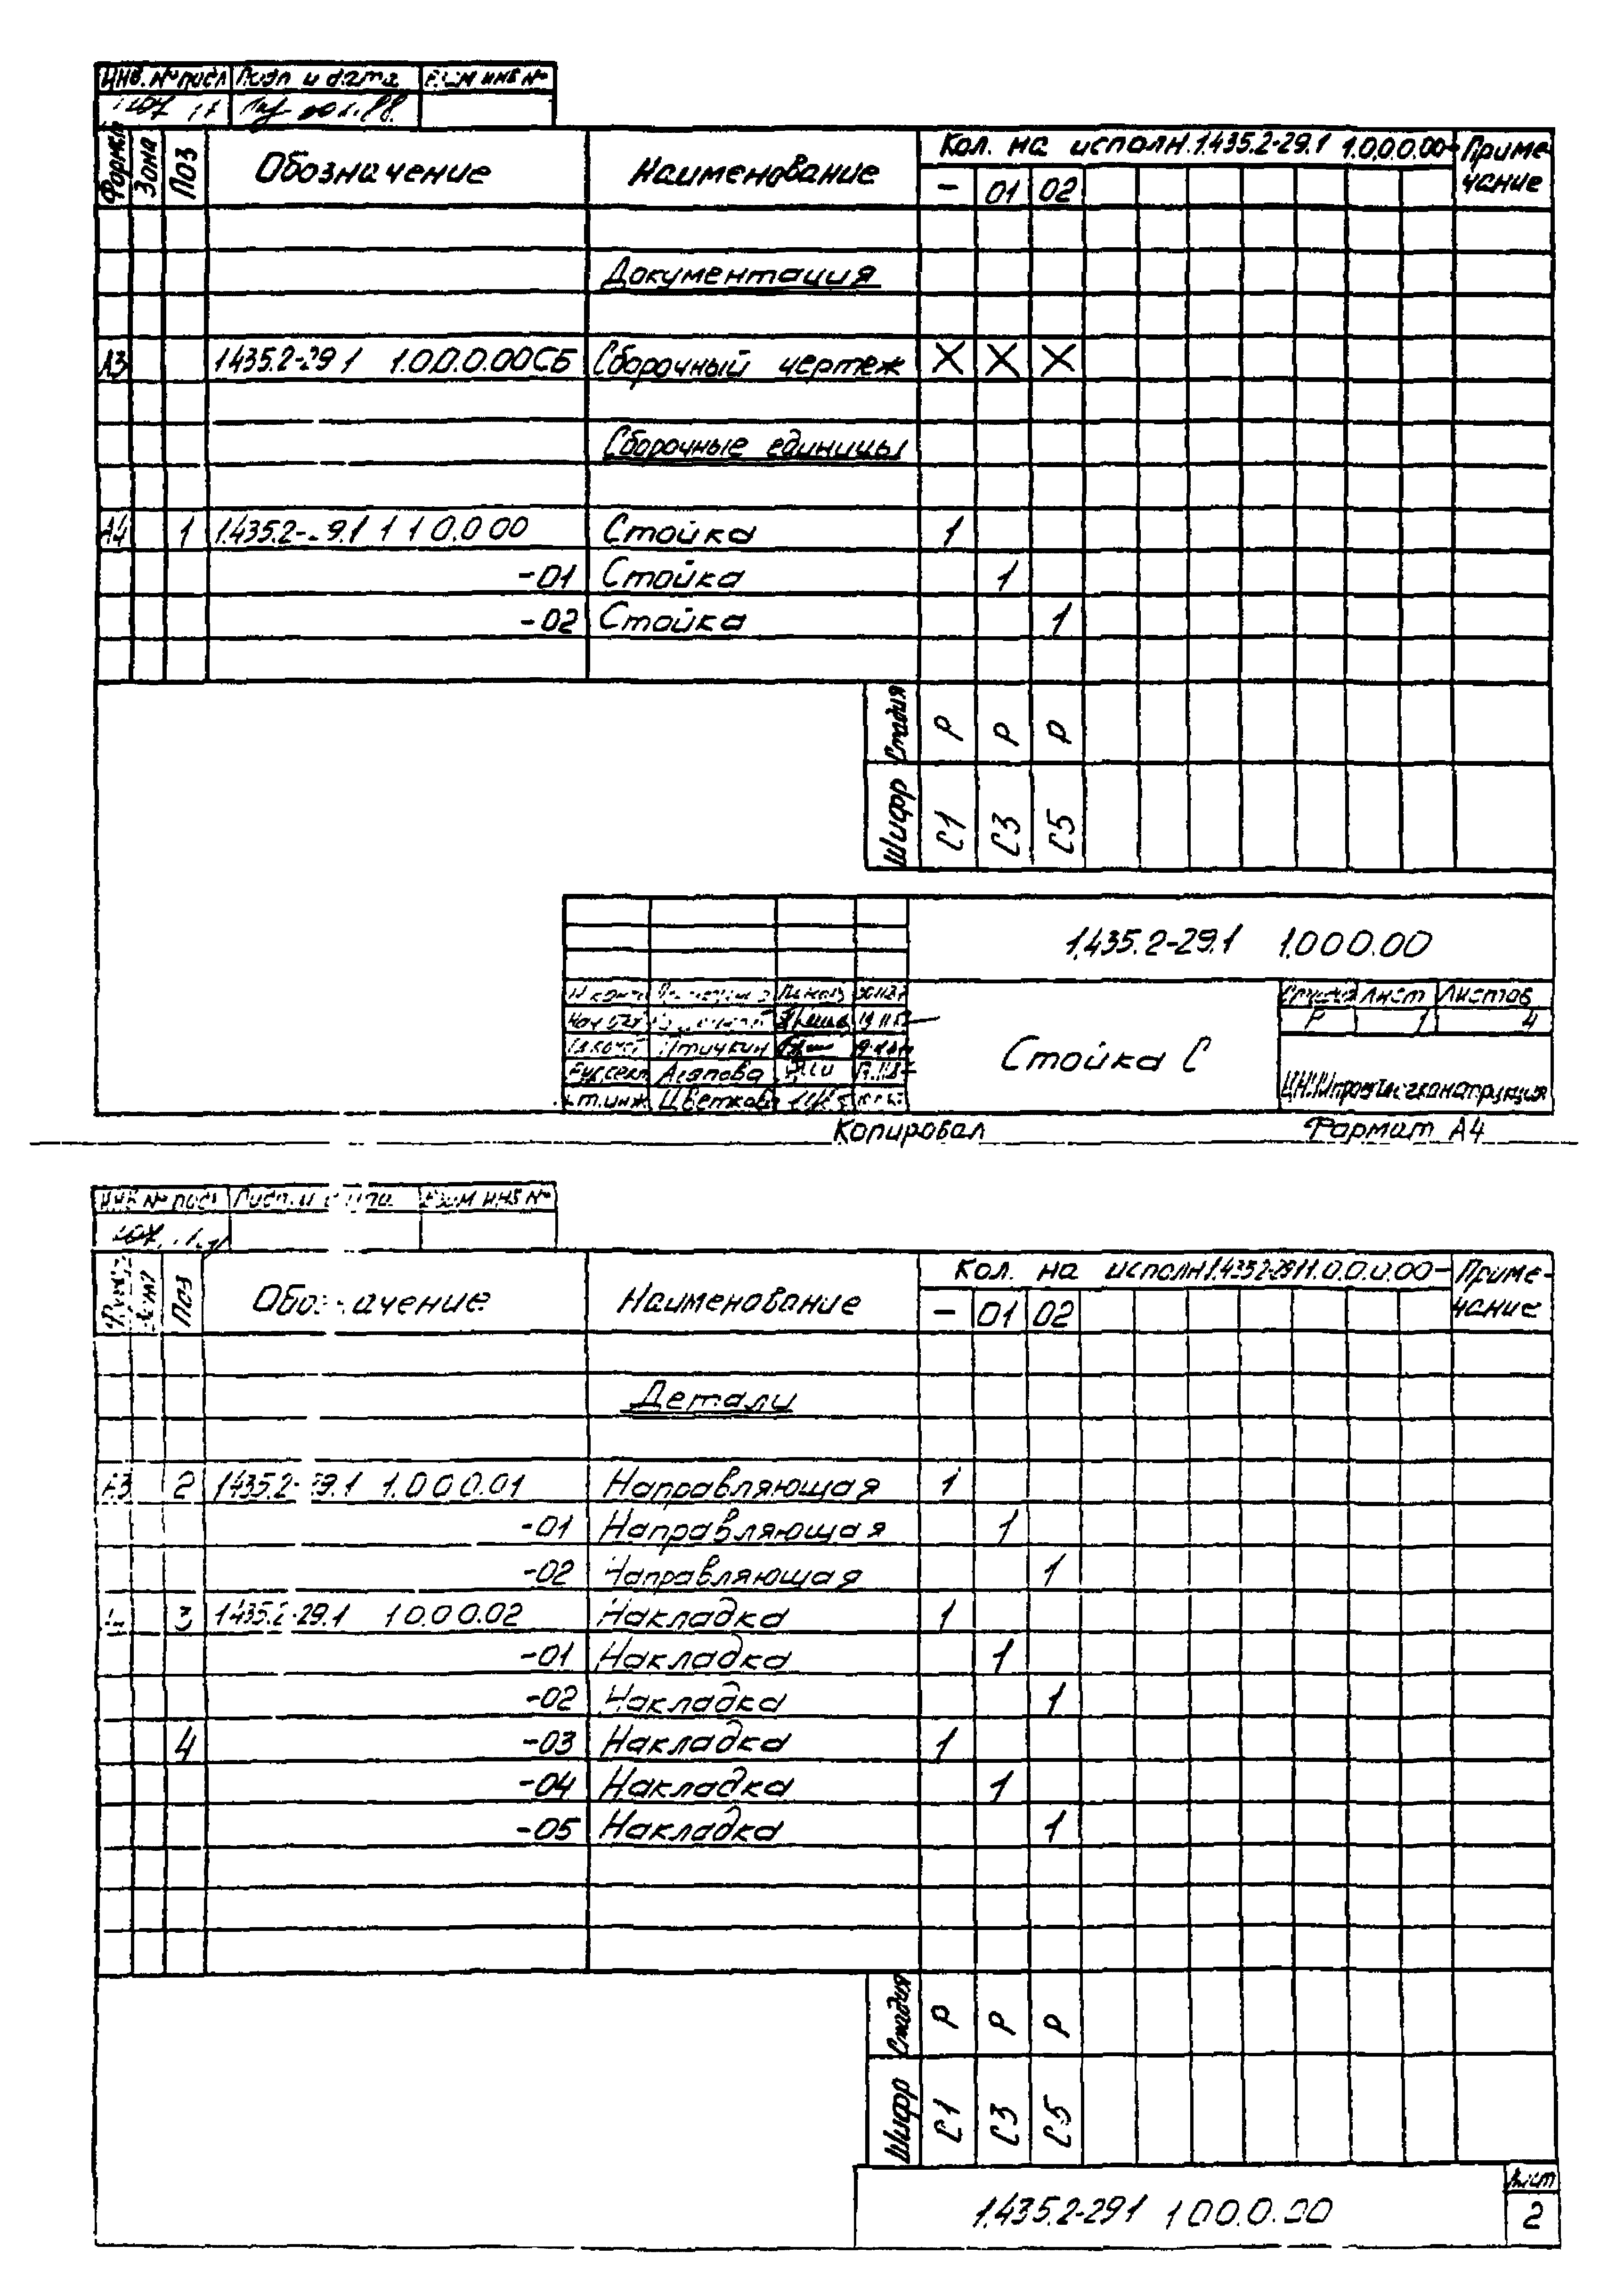 Инв. № подл Подп и дата Взам инв №
Формат Зона Поз Обозначение Наименование Кол. на исполн. 1.435.2-29.1 1.0.0.0.00- Приме-
чание
- 01 02
Документация
А3 1.435.2-29.1 1.0.0.0.00СБ Сборочный чертеж X X X
Сборочные единицы
А4 1 1.435.2-29.1 1.1.0.0.00 Стойка 1
-01 Стойка 1
-02 Стойка 1
Стадия Р Р Р
Шифр С1 С3 С5
1.435.2-29.1 1.0.0.0.00
Н контр
Нач отд
Птичкин
Рук сект Агапова
Ст. инж Цветкова
Стойка С
Стадия Лист Листов
Р 1 4
ЦНИИпроектлегконструкция
Копировал Формат А4
Инв № подл Подп. и дата Взам инв №
Поз Обозначение Наименование Кол. на исполн 1.435.2-29.1 1.0.0.0.00- Приме-
чание
- 01 02
Детали
А3 2 1.435.2-29.1 1.0.0.0.01 Направляющая 1
-01 Направляющая 1
-02 Направляющая 1
3 1.435.2-29.1 1.0.0.0.02 Накладка 1
-01 Накладка 1
-02 Накладка 1
4 -03 Накладка 1
-04 Накладка 1
-05 Накладка 1
Стадия Р Р Р
Шифр С1 С3 С5
1.435.2-29.1 1.0.0.0.00
Лист
2